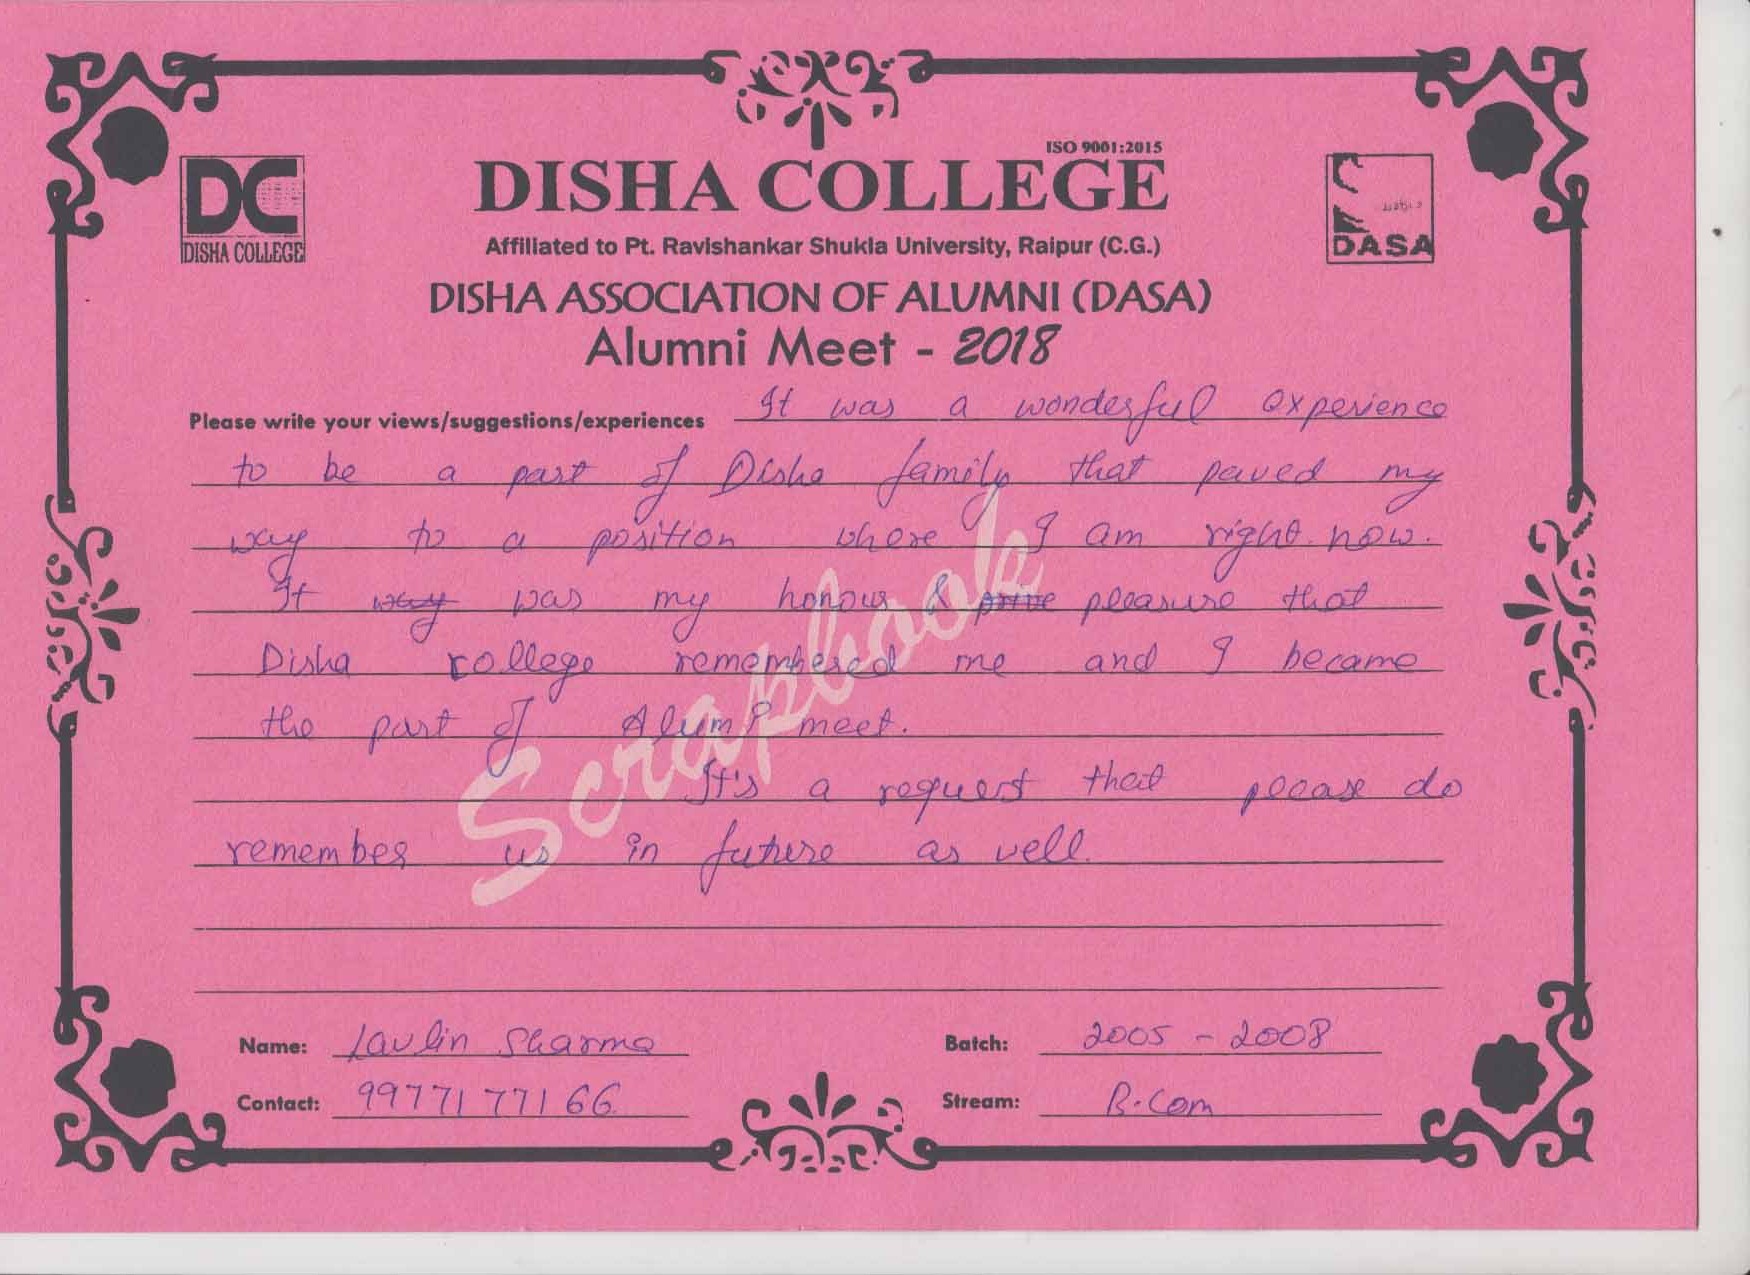 ISO 9001:2015
DC
DISHA COLLEGE
DISHA COLLEGE
DASA
Affiliated to Pt. Ravishankar Shukla University, Raipur (C.G.)
DISHA ASSOCIATION OF ALUMNI (DASA)
Alumni Meet - 2018
Please write your views/suggestions/experiences It was a wonderful experience
to be a part of Disha family that paved my
way to a position where I am right now.
It way was my honour & prive pleasure that
Disha college remembered me and I became
the part of Alumi meet.
It's a request that please do
remember us in future as well.
Scrapbook
Name: Lavlin Sharma Batch: 2005 - 2008
Contact: 9977177166 Stream: B.Com